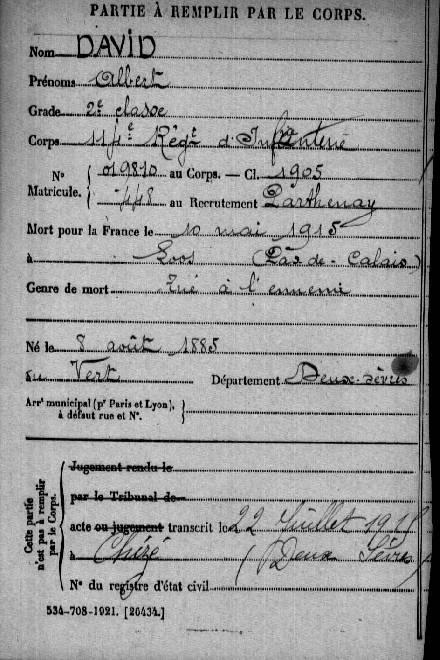 PARTIE À REMPLIR PAR LE CORPS.
Nom DAVID
Prénoms Albert
Grade 2e classe
Corps 114e Régt d'Infanterie
N° 019810 au Corps. — Cl. 1905
Matricule. 448 au Recrutement Parthenay
Mort pour la France le 10 mai 1915
à Loos (Pas-de-Calais)
Genre de mort Tué à l'ennemi
Né le 8 août 1885
au Vert Département Deux-Sèvres
Arrt municipal (pr Paris et Lyon),
à défaut rue et N°.
Cette partie
n'est pas à remplir
par le Corps.
Jugement rendu le
par le Tribunal de
acte ou jugement transcrit le 22 Juillet 1915
à Chizé (Deux Sèvres
N° du registre d'état civil
534-708-1921. [26434.]